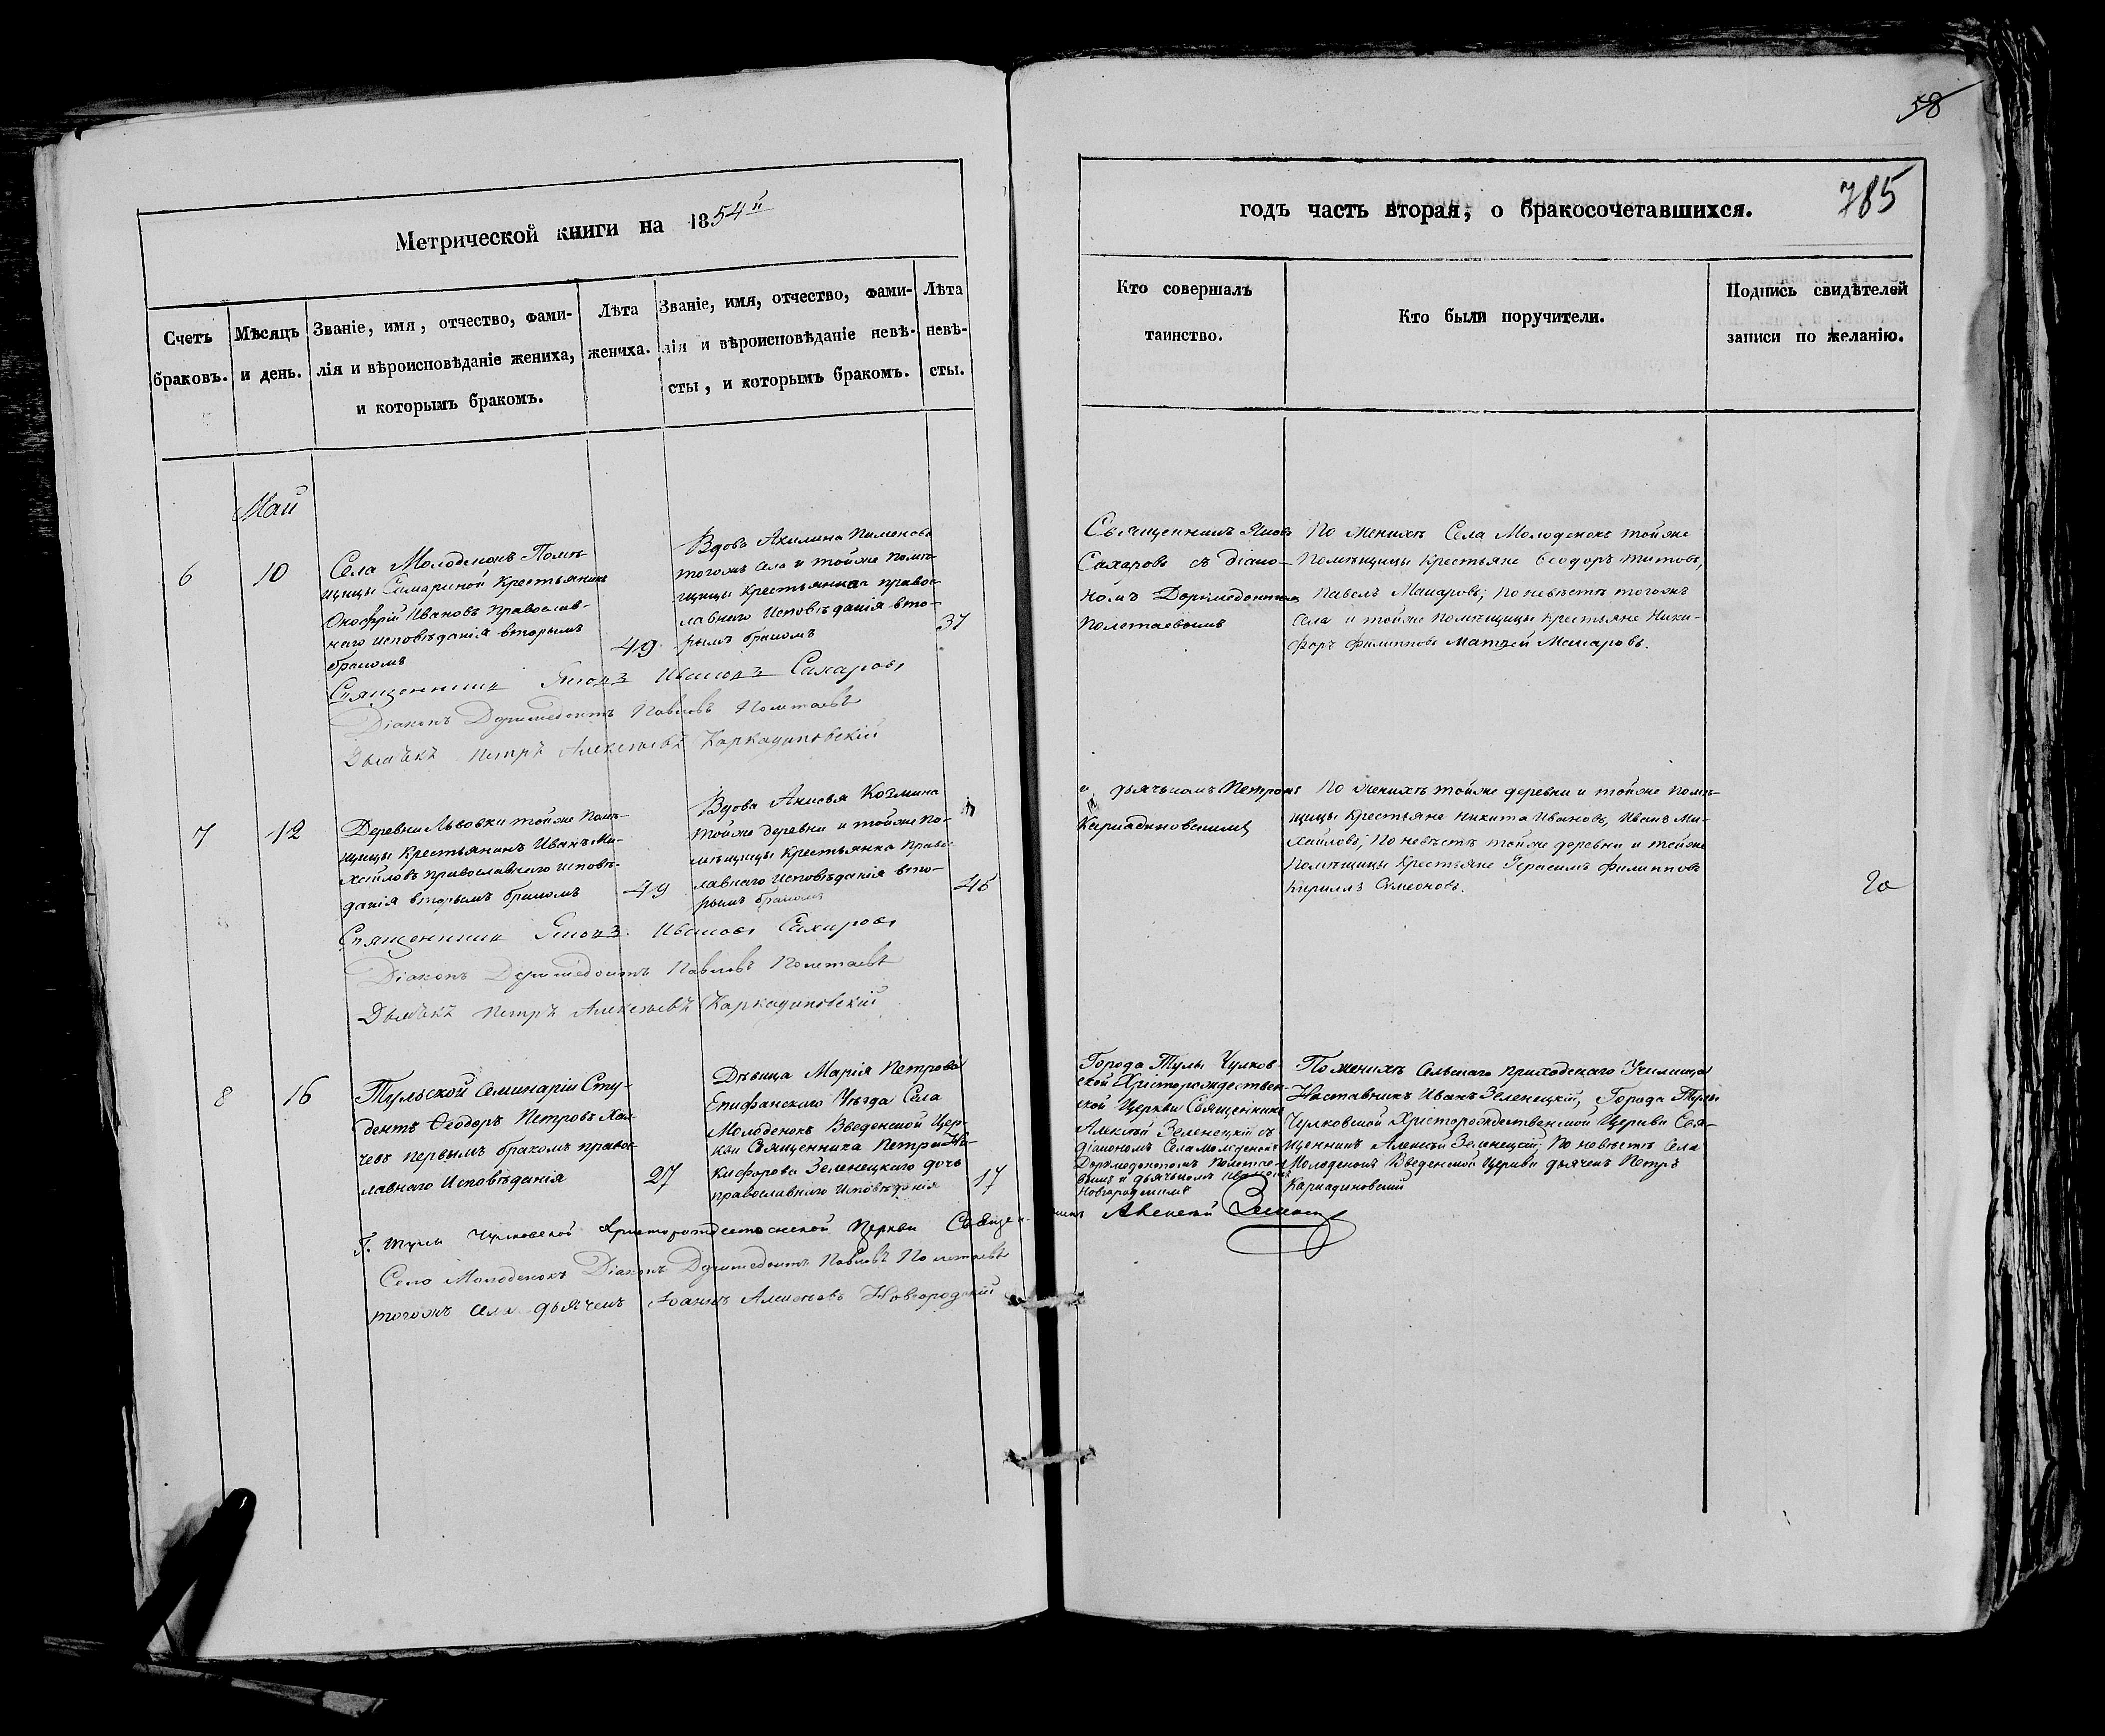 58
Метрической книги на 1854й
годъ часть вторая, о бракосочетавшихся.
785
Счетъ
браковъ.
Мѣсяцъ
и день.
Званіе, имя, отчество, фами-
лія и вѣроисповѣданіе жениха,
и которымъ бракомъ.
Лѣта
жениха.
Званіе, имя, отчество, фами-
лія и вѣроисповѣданіе невѣ-
сты, и которымъ бракомъ.
Лѣта
невѣ-
сты.
Кто совершалъ
таинство.
Кто были поручители.
Подпись свидѣтелей
записи по желанію.
Май
6
10
Села Молоденокъ Помѣ-
щицы Самариной Крестьянинъ
Онофрій Ивановъ Православ-
наго исповѣданія вторымъ
бракомъ
49
Вдова Акилина Пименова
тогожъ села и тойже Помѣ-
щицы Крестьянка право-
лавнаго Исповѣданія вто-
рымъ бракомъ
37
Священникъ Яковъ
Сахаровъ съ діако-
номъ Доримедонтомъ
Полетаевымъ
По женихѣ Села Молоденокъ тойже
Помѣщицы Крестьяне Ѳеодоръ Титовъ,
Павелъ Макаровъ; По невѣстѣ тогожъ
Села и тойже Помѣщицы Крестьяне Ники-
форъ Филипповъ Матвей Макаровъ.
Священникъ Яковъ Ивановъ Сахаровъ
Діаконъ Доримедонтъ Павловъ Полетаевъ
Дьячекъ Петръ Алексѣевъ Каркадиновскій
7
12
Деревни Львовки тойже Помѣ-
щицы Крестьянинъ Иванъ Ми-
хайловъ православнаго исповѣ-
данія вторымъ бракомъ
49
Вдова Анисья Козмина
Тойже деревни и тойже По-
мѣщицы Крестьянка Право-
лавнаго Исповѣданія вто-
рымъ бракомъ
45
и дьячькомъ Петромъ
Каркадиновскимъ
По женихѣ тойже деревни и тойже Помѣ-
щицы Крестьяне Никита Ивановъ, Иванъ Ми-
хайловъ; По невѣстѣ тойже деревни и тойже
Помѣщицы Крестьяне Герасимъ Филипповъ
Кириллъ Симеоновъ.
Священникъ Яковъ Ивановъ Сахаровъ
Діаконъ Доримедонтъ Павловъ Полетаевъ
Дьячекъ Петръ Алексѣевъ Каркадиновскій
8
16
Тульской Семинаріи Сту-
дентъ Ѳеодоръ Петровъ
первымъ бракомъ право-
лавнаго Исповѣданія
27
Дѣвица Марія Петрова
Епифанскаго Уѣзда Села
Молоденокъ Введенской Цер-
кви Священника Петра Ни-
кифорова Зеленецкаго дочь
православнаго Исповѣданія
17
Города Тулы Чулков-
ской Христорождествен-
ской Церкви Священникъ
Алексѣй Зеленецкій съ
діакономъ Села Молоденокъ
Доримедонтомъ Полетае-
вымъ и дьячкомъ Иваномъ
Новгородскимъ
По женихѣ Сельскаго приходскаго Училища
Наставникъ Иванъ Зеленецкій, Города Тулы
Чулковской Христорождественской Церкви Свя-
щенникъ Алексѣй Зеленецкій; По невѣстѣ Села
Молоденокъ Введенской Церкви дьячекъ Петръ
Каркадиновскій
Г. Тулы Чулковской Христорождественской Церкви Священникъ Алексѣй
Села Молоденокъ Діаконъ Доримедонтъ Павловъ Полетаевъ
тогожъ села дьячекъ Іоаннъ Алексѣевъ Новгородскій